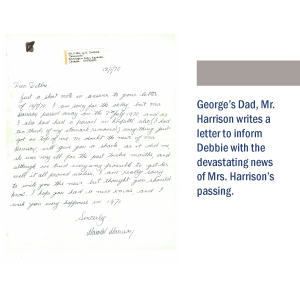 Dear Debbie
Just a short note in answer to your letter
of I am sorry for the delay, but Mrs
Harrison passed away on the 7th July 1970 and as
I also had a period in hospital also (I had
two thirds of my stomach removed) everything just
got on top of me. no doubt the news of Mrs
Harrison will give you a shock as it did us,
it was very ill for the past twelve months and
although we tried everything possible to get her
well it all proved useless. I am really sorry
to write you this news but thought you should
know. I hope you had a nice xmas and I
wish you every happiness in 1971
Sincerely
Harold Harrison
George's Dad, Mr.
Harrison writes a
letter to inform
Debbie with the
devastating news
of Mrs. Harrison's
passing.